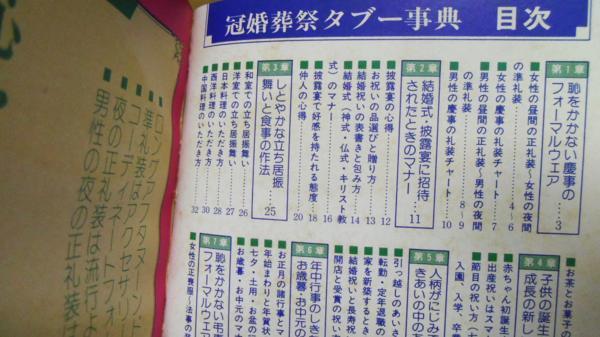 冠婚葬祭タブー事典　目次
第1章
恥をかかない慶事の
フォーマルウェア……3
女性の昼間の正礼装〜女性の夜間
の準礼装……4〜6
女性の慶事の礼装チャート……7
男性の昼間の正礼装〜男性の夜間
の準礼装……8〜9
男性の慶事の礼装チャート……10
第2章
結婚式・披露宴に招待
されたときのマナー……11
披露宴の心得……12
お祝いの品選びと贈り方……13
結婚祝いの表書きと包み方……14
結婚式（神式・仏式・キリスト教
式）のマナー……16
披露宴で好感を持たれる態度……18
仲人の心得……20
第3章
しとやかな立ち居振
舞いと食事の作法……25
和室での立ち居振舞い……26
洋室での立ち居振舞い……27
日本料理のいただき方……28
西洋料理のいただき方……30
中国料理のいただき方……32
第4章
子供の誕生
成長の新し
赤ちゃん初誕生
出産祝いはスマ
節目の祝い方（七
入園、入学、卒業
お茶とお菓子の
第5章
人柄がにじみ
きあいの中
引っ越しのあいさ
転勤・定年退職の
家を新築するとき
結婚祝いと長寿祝
開店と受賞の祝い方
第6章
年中行事のしき
お歳暮・お中元の
お正月の諸行事とマ
年始まわりと年賀状
七夕・土用・お盆の
お歳暮・お中元のマ
第7章
恥をかかない弔
フォーマルウェア
女性の正喪服〜法事の
ロングアフタヌーンド
準礼装はアクセサリー
コーディネートフォ
夜の正礼装は流行よ
男性の夜の正礼装は